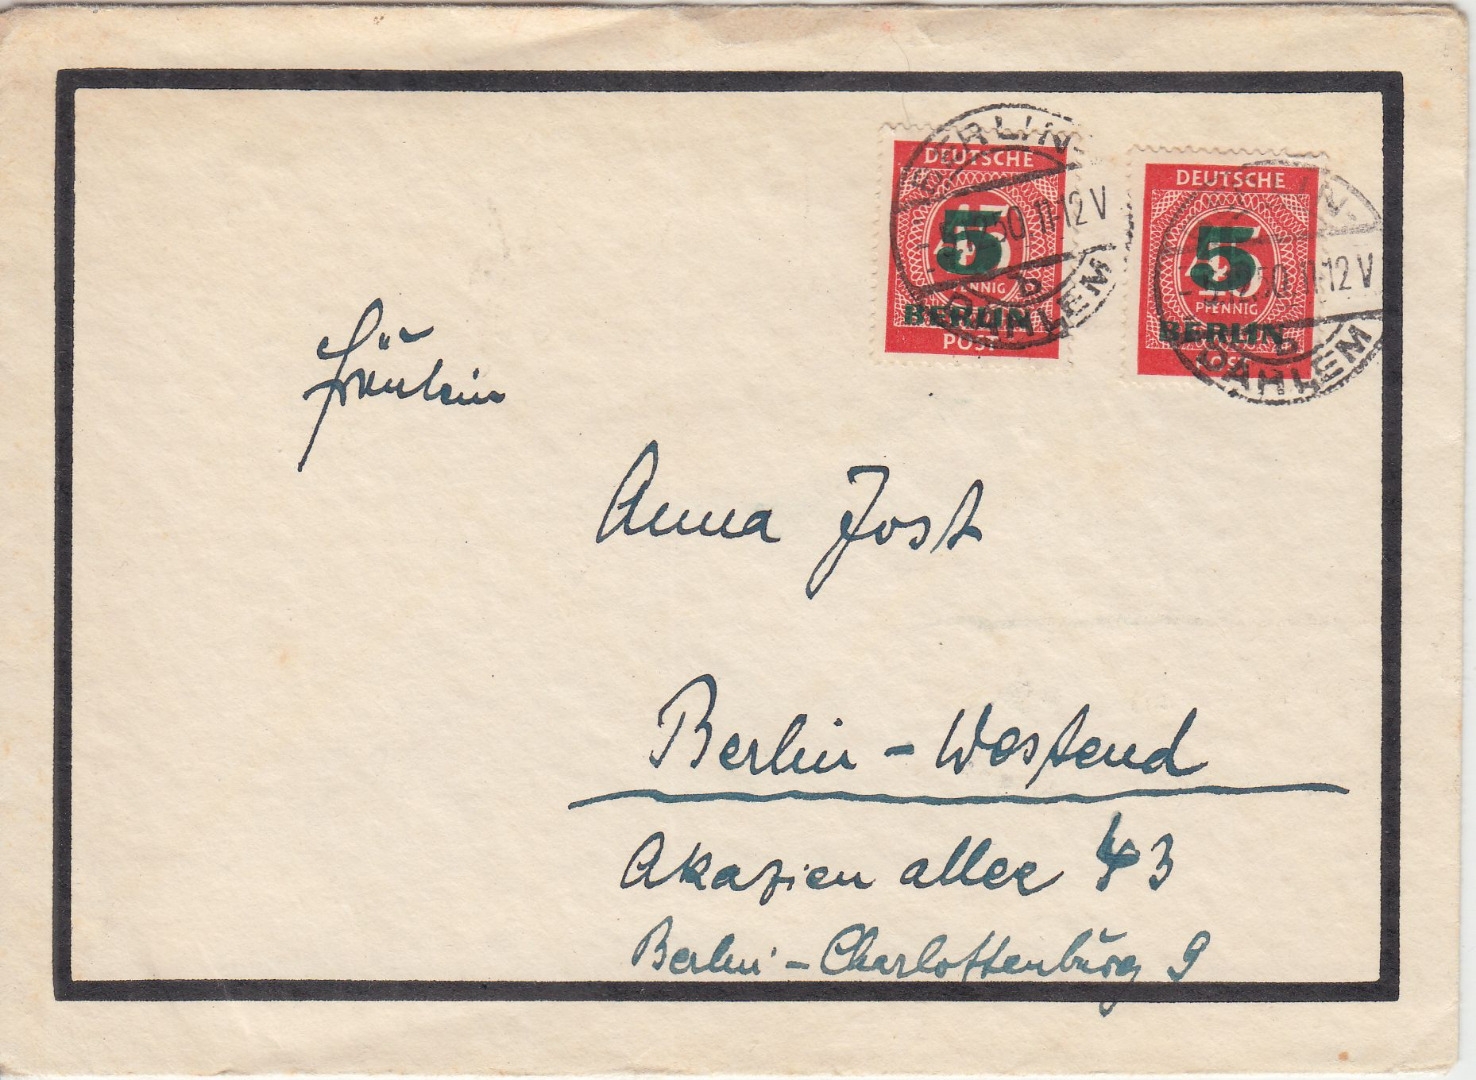 DEUTSCHE
5
45
PFENNIG
BERLIN
POST
DEUTSCHE
5
45
PFENNIG
BERLIN
POST
BERLIN-
50 11-12 V
b
DAHLEM
50 11-12 V
b
DAHLEM
Fräulein
Anna Jost
Berlin - Westend
Akazienallee 43
Berlin - Charlottenburg 9